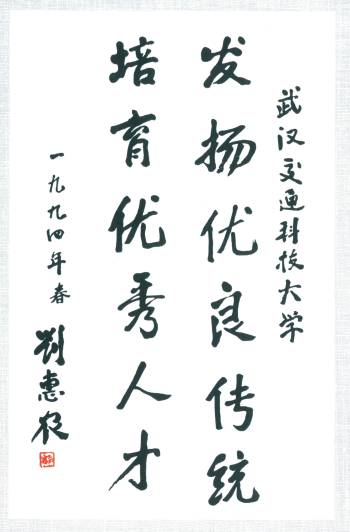 武汉交通科技大学
发扬优良传统
培育优秀人才
一九九四年春
刘惠农